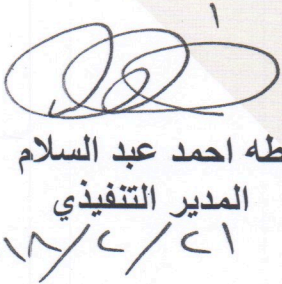 طه احمد عبد السلام
المدير التنفيذي
١٨/٢/٢١